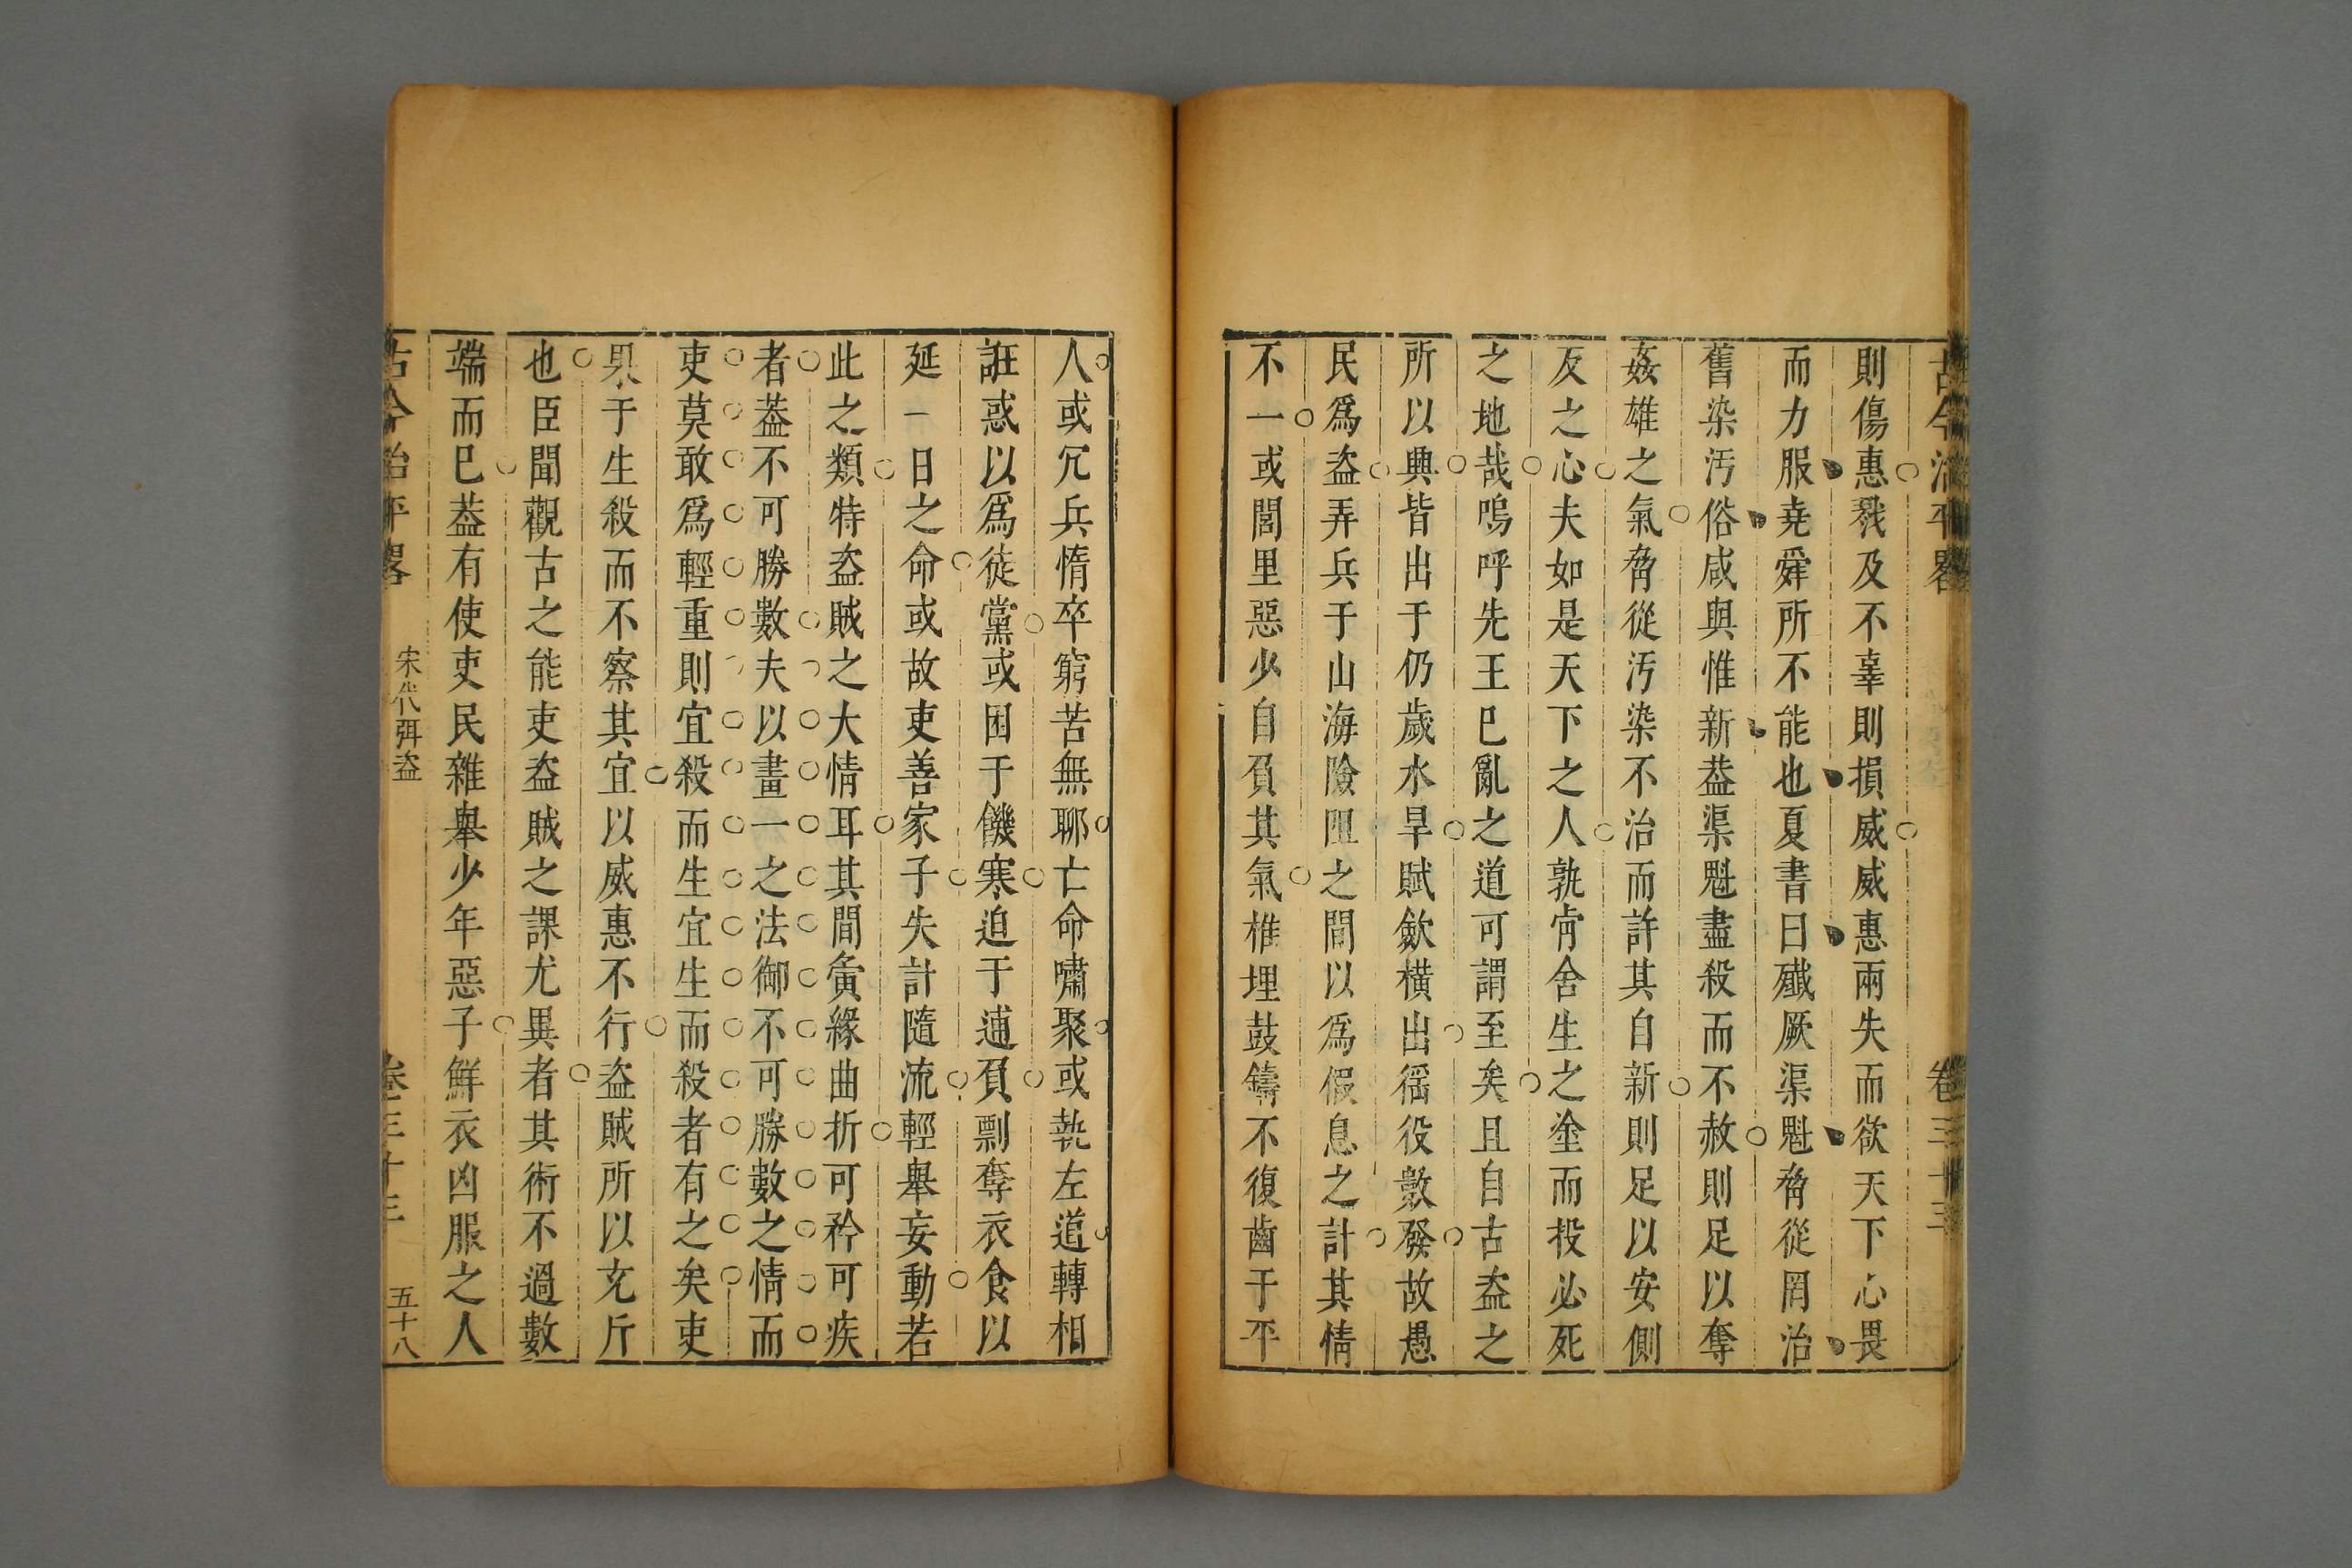 古今治平畧 卷三十三
則傷惠戮及不辜則損威威惠兩失而欲天下心畏
而力服堯舜所不能也夏書曰殱厥渠魁脅從罔治
舊染汚俗咸與惟新葢渠魁盡殺而不赦則足以奪
姦雄之氣脅從汚染不治而許其自新則足以安側
反之心夫如是天下之人孰肯舍生之塗而投必死
之地哉嗚呼先王已亂之道可謂至矣且自古盗之
所以興皆出于仍歲水旱賦歛橫出徭役數發故愚
民爲盗弄兵于山海險阻之間以爲假息之計其情
不一或閭里惡少自負其氣椎埋鼓鑄不復齒于平
人或冗兵惰卒窮苦無聊亡命嘯聚或執左道轉相
誑惑以爲徒黨或困于饑寒迫于逋負剽奪衣食以
延一日之命或故吏善家子失計隨流輕舉妄動若
此之類特盗賊之大情耳其間夤緣曲折可矜可疾
者葢不可勝數夫以畫一之法御不可勝數之情而
吏莫敢爲輕重則宜殺而生宜生而殺者有之矣吏
果于生殺而不察其宜以威惠不行盗賊所以充斥
也臣聞觀古之能吏盗賊之課尤異者其術不過數
端而已葢有使吏民雜舉少年惡子鮮衣凶服之人
古今治平畧 宋代弭盗 卷三十三 五十八